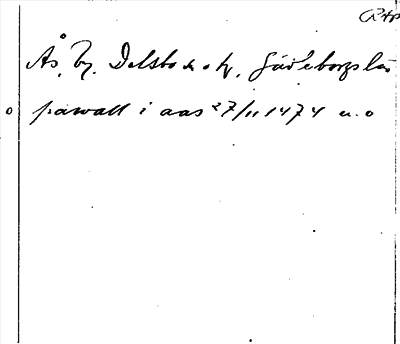 Ås, by, Delsbo sn o kp, Gävleborgs län
pawall i aas 27/11 1474 u. o